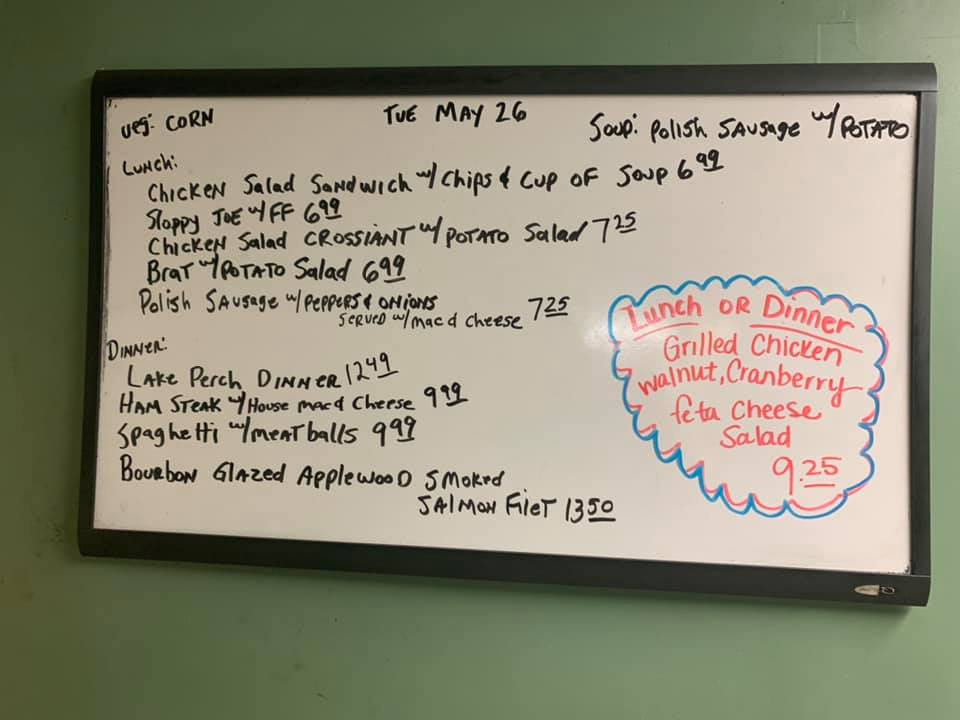 Veg: CORN
TUE MAY 26
Soup: Polish Sausage w/ POTATO
Lunch:
Chicken Salad Sandwich w/ Chips & Cup of Soup 6 99
Sloppy Joe w/ FF 6 99
Chicken Salad CROSSIANT w/ POTATO Salad 7 25
Brat w/ POTATO Salad 6 99
Polish Sausage w/ Peppers & Onions
Served w/ mac & cheese 7 25
Dinner:
Lake Perch Dinner 12 49
Ham Steak w/ House mac & Cheese 9 99
Spaghetti w/ meatballs 9 99
Bourbon Glazed Applewood Smoked
Salmon Filet 13 50
Lunch OR Dinner
Grilled Chicken
walnut, Cranberry
feta Cheese
Salad
9.25